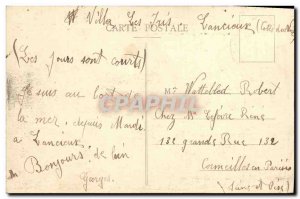 Villa Les Iris Lancieux (Côtes du Nord)
CARTE POSTALE
(Les jours sont courts)
Je suis au bord de
la mer, depuis Mardi
a Lancieux.
Bonjours de loin
Garges.
Mr Wattebled Robert
Chez Mr Lefèvre René
132 grande Rue 132
Cormeilles en Parisis
(Seine et Oise)